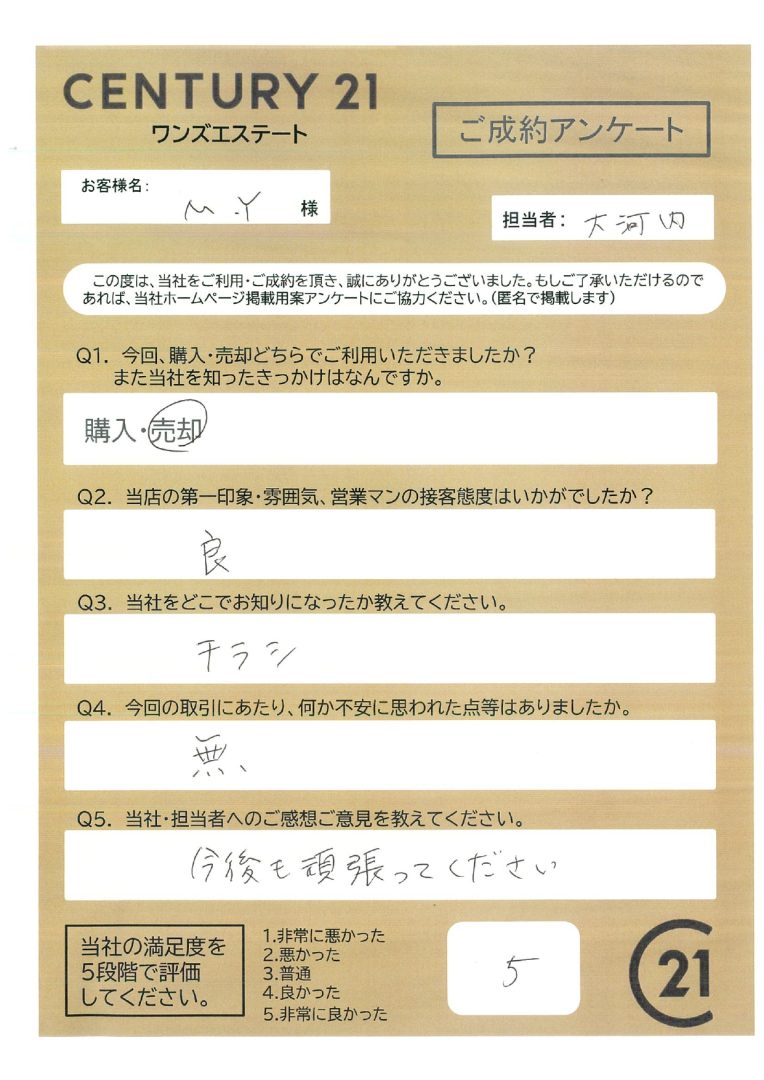 CENTURY 21
ワンズエステート
ご成約アンケート
お客様名:
M.Y 様
担当者: 大河内
この度は、当社をご利用・ご成約を頂き、誠にありがとうございました。もしご了承いただけるので
あれば、当社ホームページ掲載用案アンケートにご協力ください。(匿名で掲載します)
Q1. 今回、購入・売却どちらでご利用いただきましたか?
また当社を知ったきっかけはなんですか。
購入・売却
Q2. 当店の第一印象・雰囲気、営業マンの接客態度はいかがでしたか?
良
Q3. 当社をどこでお知りになったか教えてください。
チラシ
Q4. 今回の取引にあたり、何か不安に思われた点等はありましたか。
無、
Q5. 当社・担当者へのご感想ご意見を教えてください。
今後も頑張ってください
当社の満足度を
5段階で評価
してください。
1.非常に悪かった
2.悪かった
3.普通
4.良かった
5.非常に良かった
5
C21